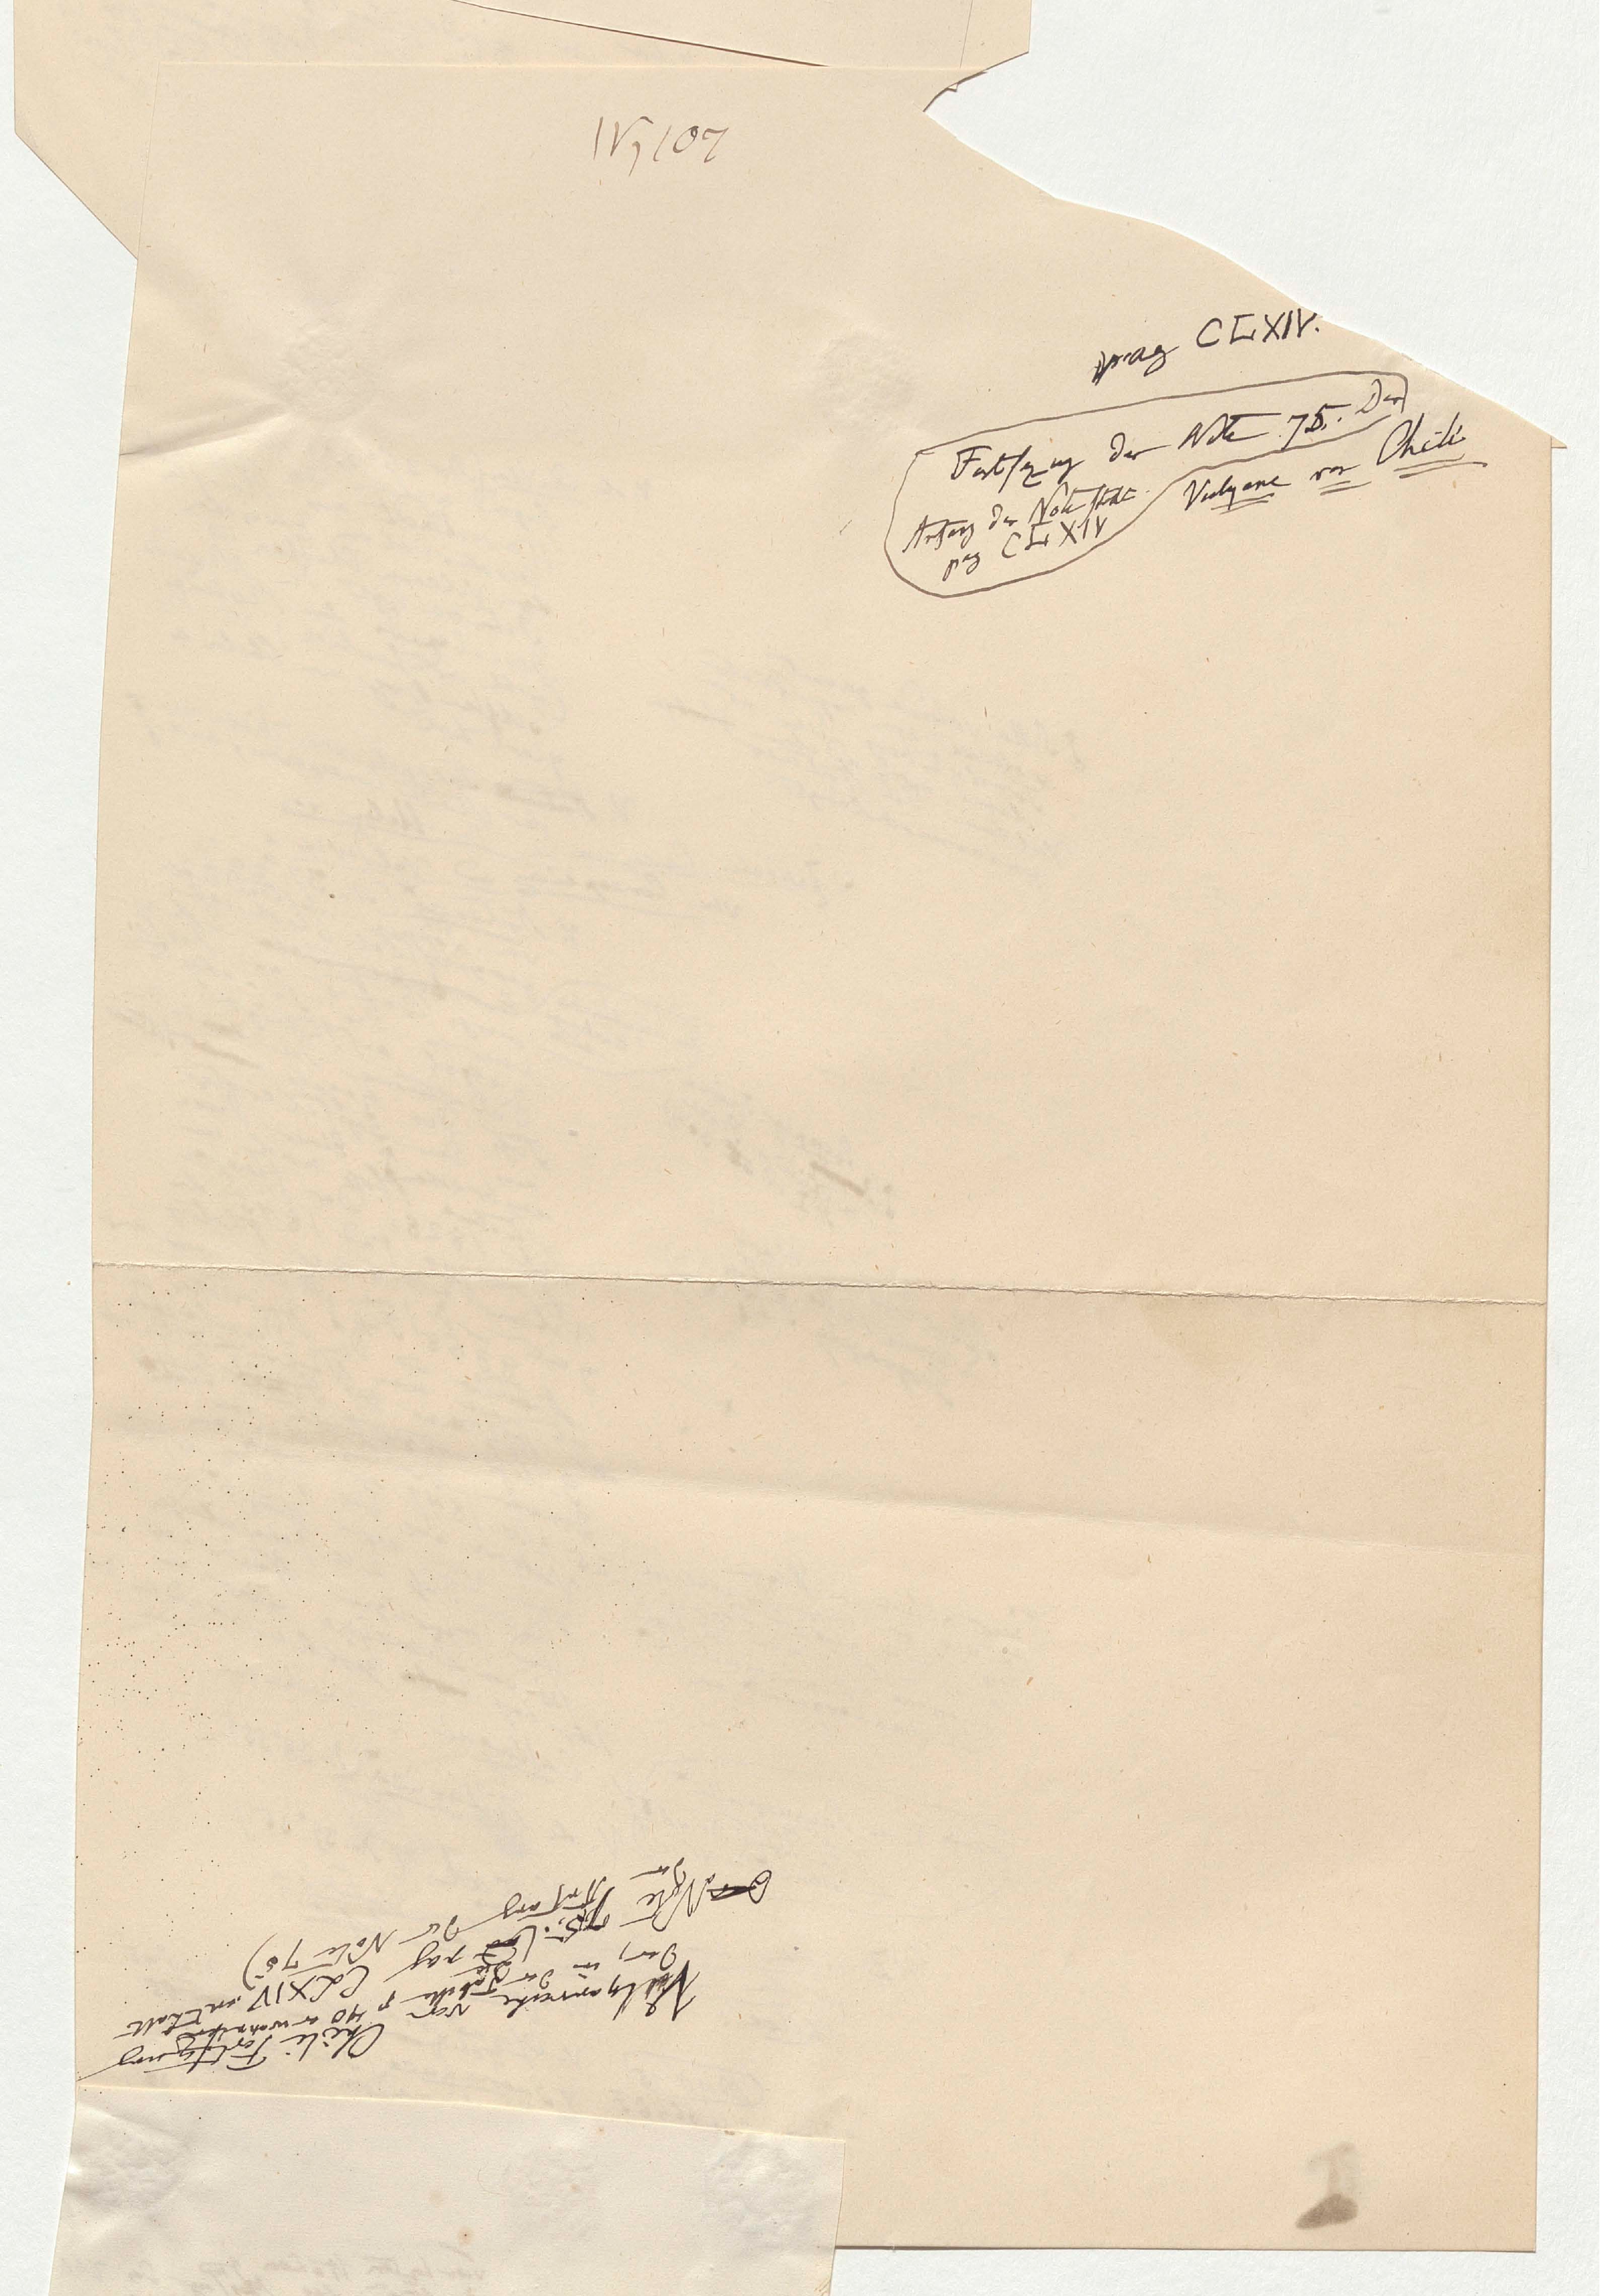 IV, 107
pag CLXIV.
Fortsezung der Note 75. Der
Anfang der Note steht
pag CLXIV
Vulkane von Chili
Vulkanreihe von Chili Fortsezung
der, in der Tabelle p 40 erwähnten
Note 75. (die pag CLXIV enthält
den Anfang der Note 75)